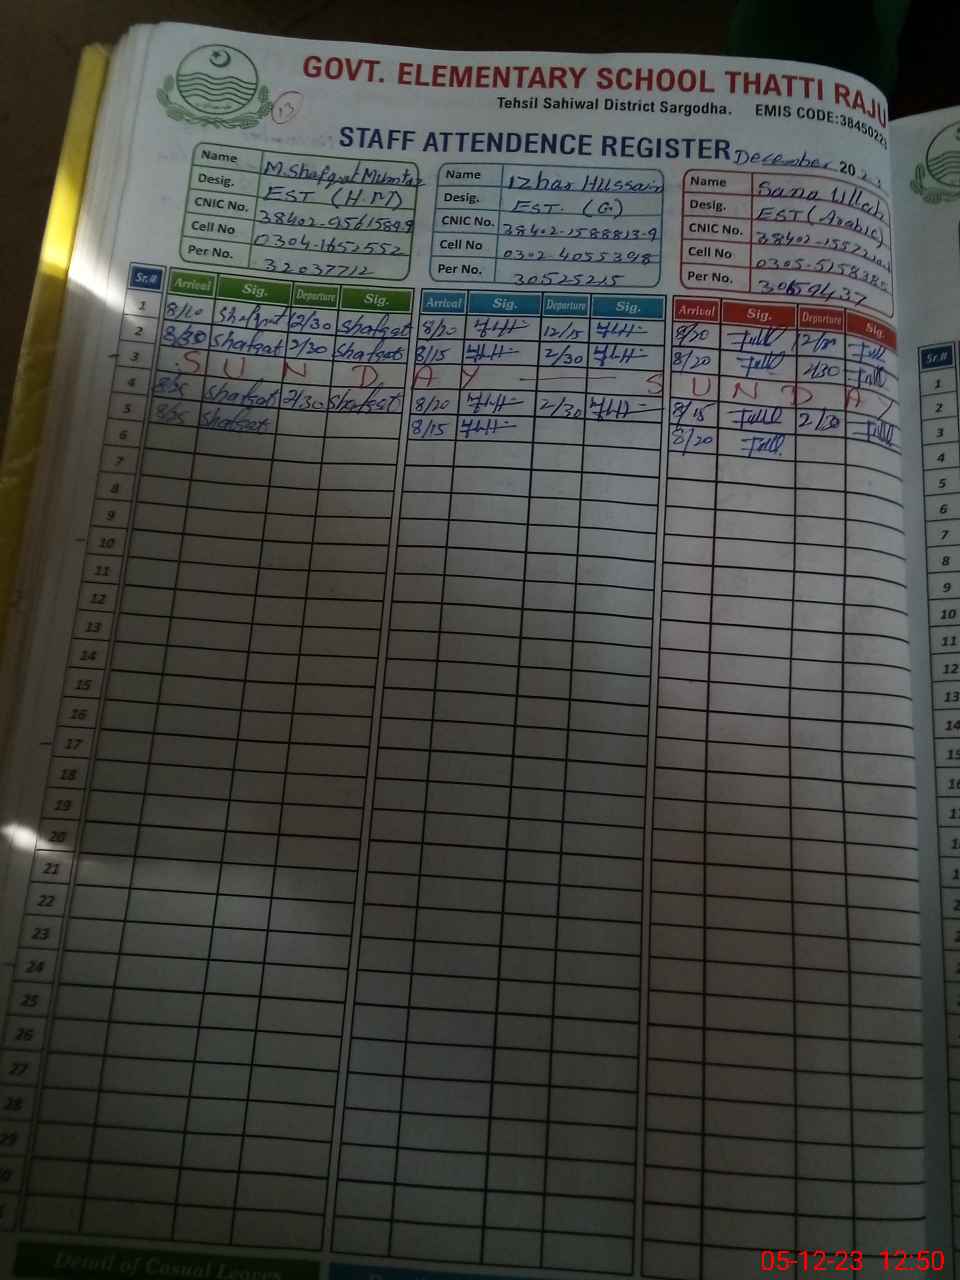 GOVT. ELEMENTARY SCHOOL THATTI RAJU
Tehsil Sahiwal District Sargodha. EMIS CODE:38450223
13
STAFF ATTENDENCE REGISTER December 202
Name M. Shafqat Mumtaz
Desig. EST (H.M)
CNIC No.
Cell No 0304-1652552
Per No. 32037712
Name Izhar Hussain
Desig. EST. (G)
CNIC No. 38402-1588813-9
Cell No 0302-4055398
Per No. 30525215
Name Sana Ullah
Desig. EST (Arabic)
CNIC No.
Cell No
Per No.
Sr.# Arrival Sig. Departure Sig. Arrival Sig. Departure Sig. Arrival Sig. Departure Sig.
1 8/20 Shafqat 12/30 Shafqat 8/20 12/15 8/20
2 8/30 Shafqat 2/30 Shafqat 8/15 2/30 8/20 2/30
3 S U N D A Y S U N D A Y
4 Shafqat 2/30 Shafqat 8/20 2/30 8/15 2/30
5 Shafqat 8/15 8/20
6
7
8
9
10
11
12
13
14
15
16
17
18
19
20
21
22
23
24
25
26
27
28
29
Detail of Casual Leaves
Sr.#
1
2
3
4
5
6
7
8
9
10
11
12
13
14
15
05-12-23 12:50